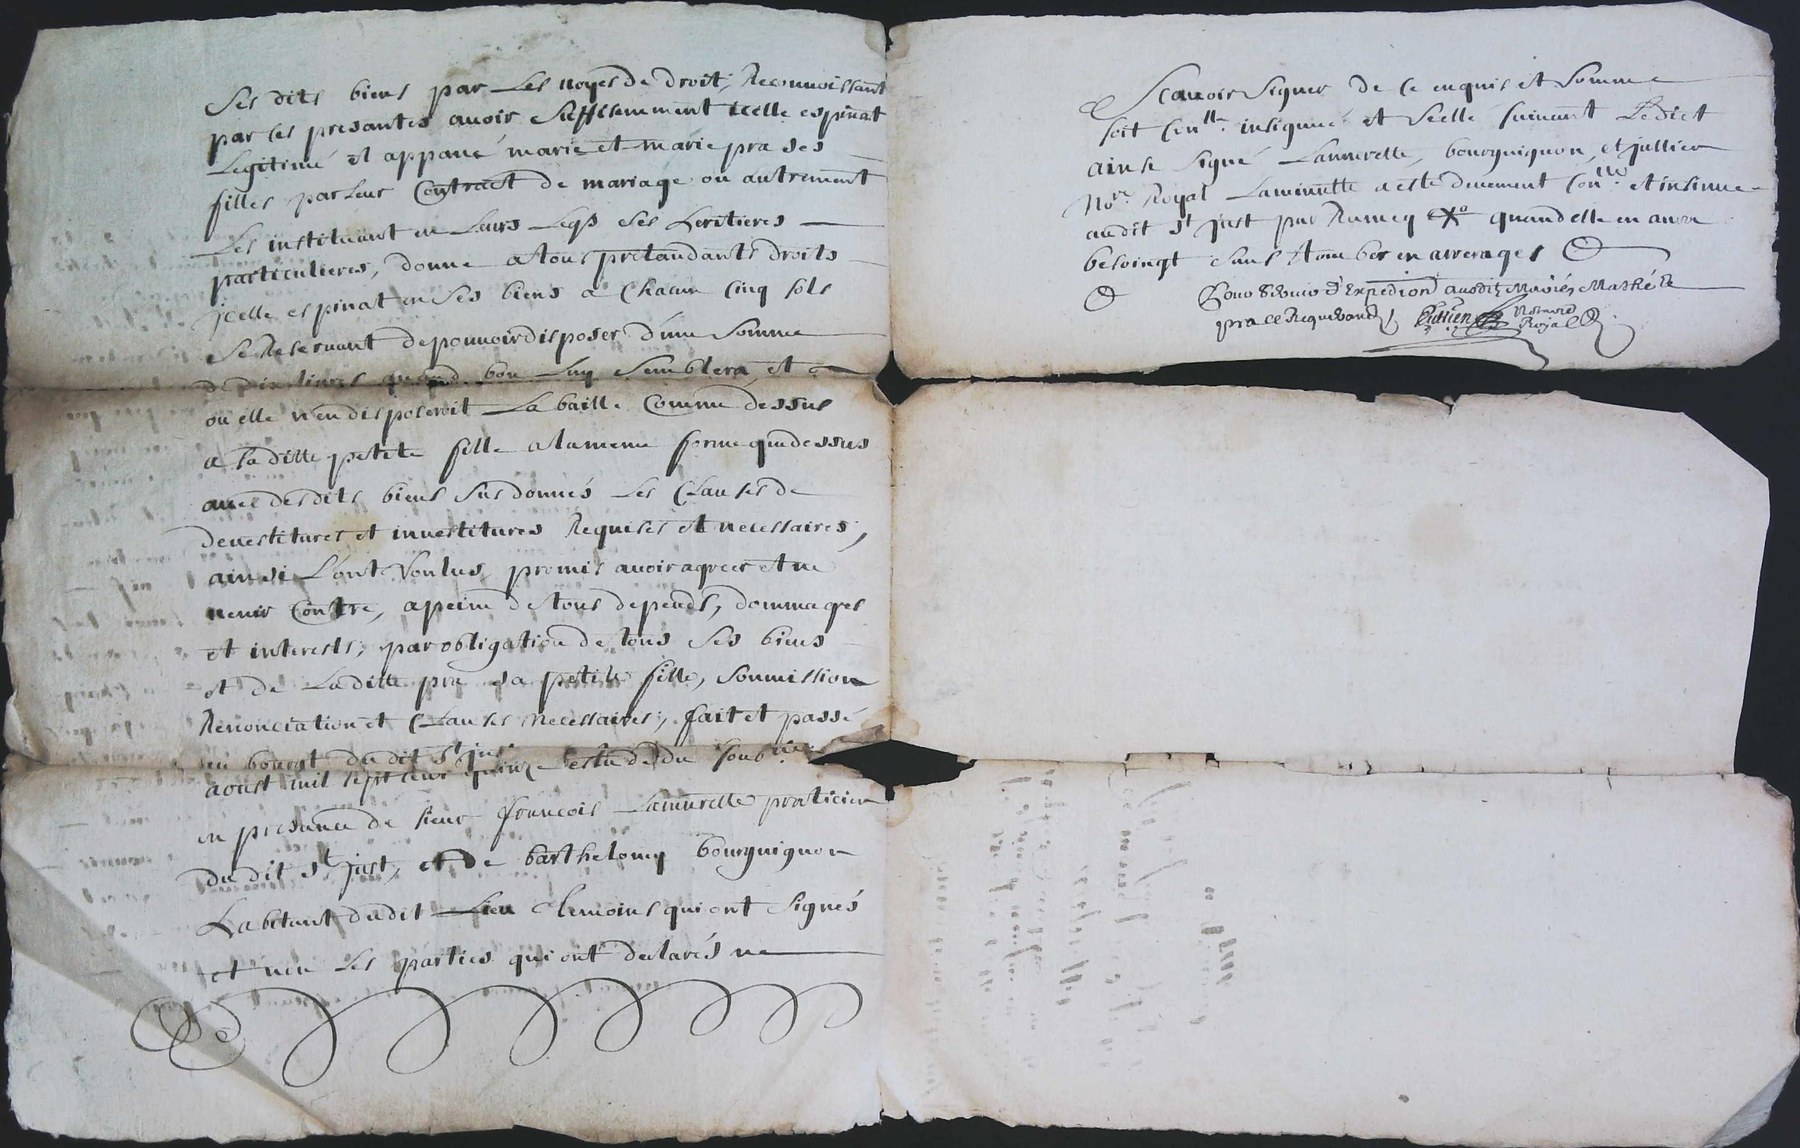 ses dits biens par les voyes de droit; Reconnoissant
par ces presantes avoir suffisemment icelle espinat
Legitimé et appané marie et marie pra ses
filles par leur Contract de mariage ou autrement
Les instituant en leurs legs ses heritieres
particulieres, donne a tous pretandants droits
jcelle espinat en ses biens a chacun Cinq sols
se Reservant de pouvoir disposer d'une somme
livres quand bon luy semblera, et
ou elle n'en disposeroit La baille comme dessus
a la ditte petite fille a la meme forme que dessus
avec desdits biens sus donnés les Clauses de
devestitures et investitures Requises et necessaires;
ainsi L'ont voulus, promis avoir agreer et ne
venir Contre, a peine de tous depends, dommages
et interests; par obligation de tous ses biens
et de Laditte pra sa petite fille, soumission
Renonciation et Clauses necessaires; fait et passé
au bourgt dudit st just
aoust mil sept cent quinze estude du soub.ne
en presance de sieur françois Lamurette praticien
du dit st just, et de barthelomy bourguignon
habitant dudit Lieu temoins qui ont signés
et non les parties qui ont declarés ne
scavoir signer de ce enquis et somme
soit Con.lle insignué et scellé suivant Ledict
ainse signé Lamurette, bourguignon, et jullien
No.re Royal La minutte a esté duement Con.lle et insinuee
audit st just par Rumey quand elle en aura
besoingt sans tomber en arrerages
Pour Expedion audit Mathé
pra ce Requerand Jullien Notaire
Royal